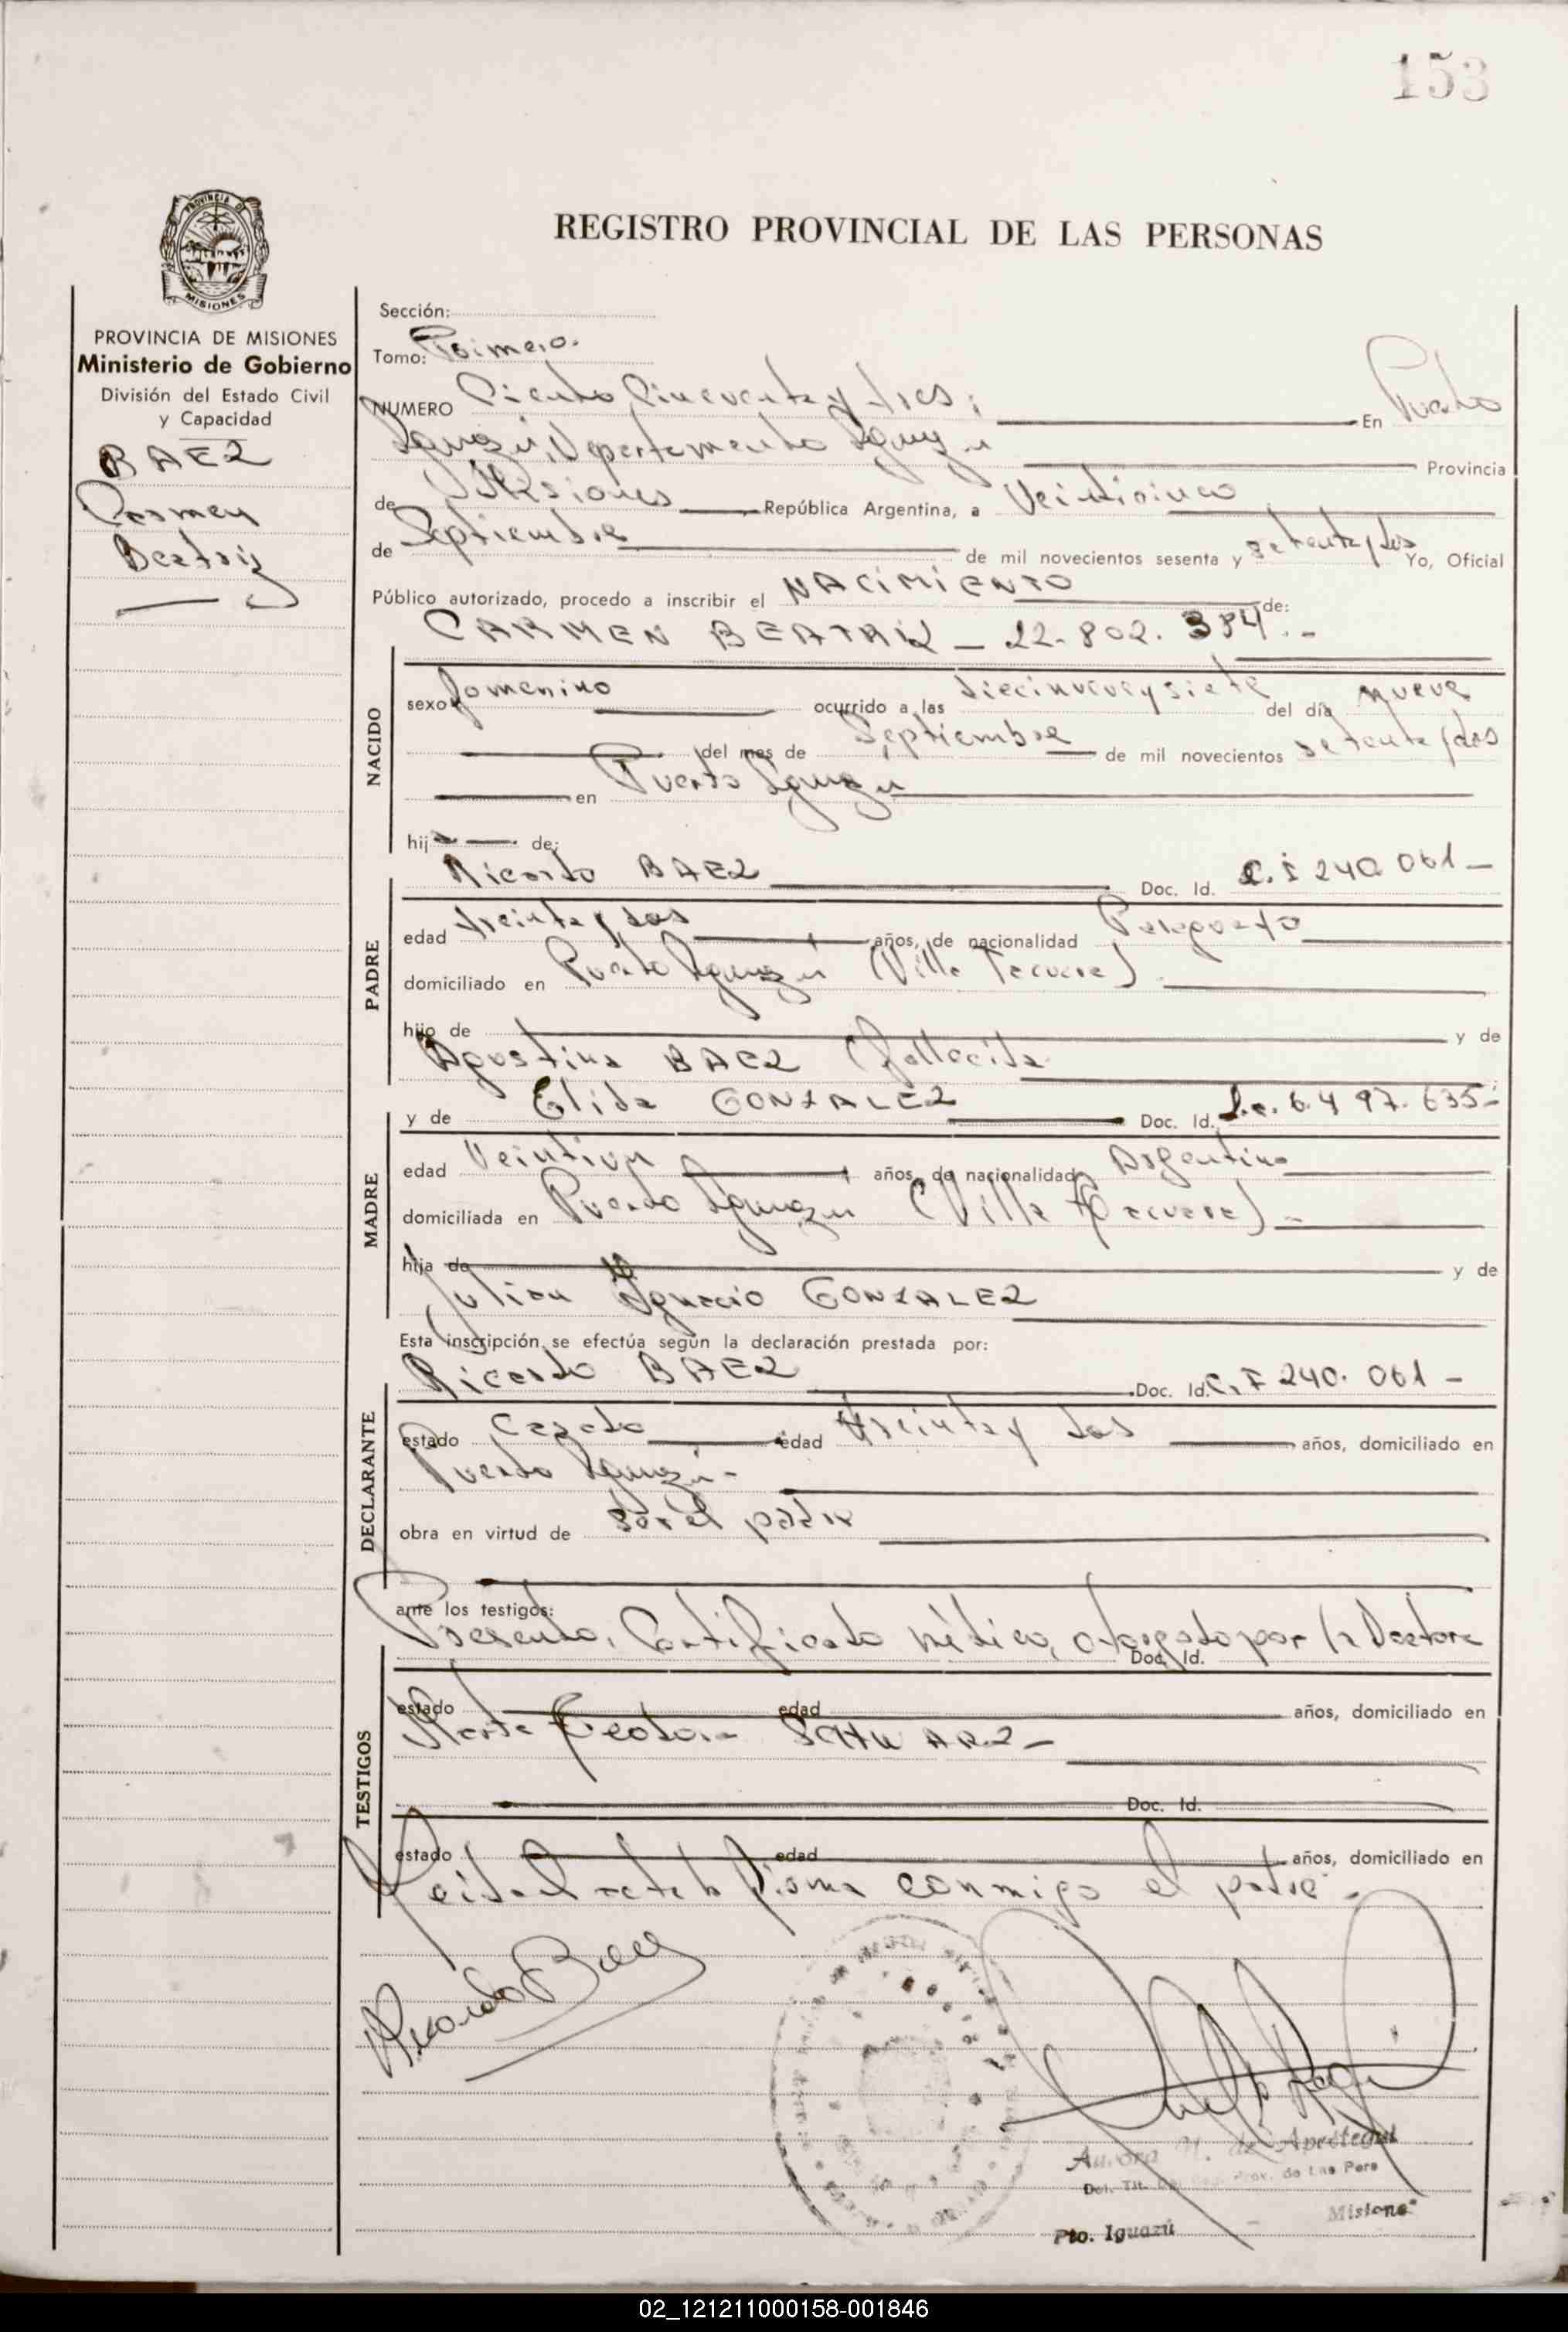 153
REGISTRO PROVINCIAL DE LAS PERSONAS
PROVINCIA DE
MISIONES
PROVINCIA DE MISIONES
Ministerio de Gobierno
División del Estado Civil
y Capacidad
BAEZ
Carmen
Beatriz
Sección:
Tomo: Primero.
NUMERO Ciento Cincuenta y tres; En Puerto
Iguazú, Departamento Iguazú Provincia
de Misiones República Argentina, a Veinticinco
de Septiembre de mil novecientos sesenta y setenta y dos Yo, Oficial
Público autorizado, procedo a inscribir el NACIMIENTO de:
CARMEN BEATRIZ - 22.802.384.-
NACIDO
sexo femenino ocurrido a las diecinueve y siete del día nueve
del mes de Septiembre de mil novecientos setenta y dos
en Puerto Iguazú
hij de:
Ricardo BAEZ Doc. Id. C.I 240.061-
PADRE
edad treinta y dos años, de nacionalidad Paraguayo
domiciliado en Puerto Iguazú (Villa Tacuara)
hijo de y de
Agustina BAEZ (fallecida
y de Elida GONZALEZ Doc. Id. L.c. 6.497.635-
MADRE
edad Veintiun años, de nacionalidad Argentina
domiciliada en Puerto Iguazú (Villa Tacuara)-
hija de y de
Julian Ignacio GONZALEZ
Esta inscripción se efectúa según la declaración prestada por:
Ricardo BAEZ Doc. Id. C.I 240.061-
DECLARANTE
estado Casado edad treinta y dos años, domiciliado en
Puerto Iguazú-
obra en virtud de ser el padre
ante los testigos:
Presenta, Certificado médico, otorgado por la Doctora
Doc. Id.
TESTIGOS
estado edad años, domiciliado en
Marta Teodora SCHWARZ-
Doc. Id.
estado edad años, domiciliado en
Leida el acta la firma conmigo el padre-
Ricardo Baez
Aurora H. de Apestegui
Prov. de Las Pers
Misiones
Pto. Iguazú
02_121211000158-001846